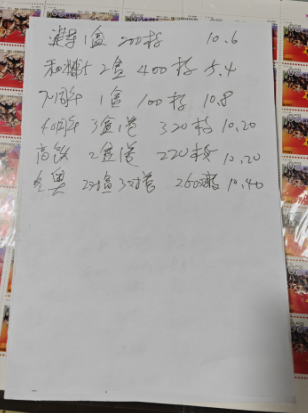 1盒 200枚 10.6
和 2盒 400枚 5.4
70周年 1盒 100枚 10.8
周年 3盒1卷 320枚 10.20
高铁 2盒1卷 220枚 10.20
冬奥 2对盒3对卷 260 10.40